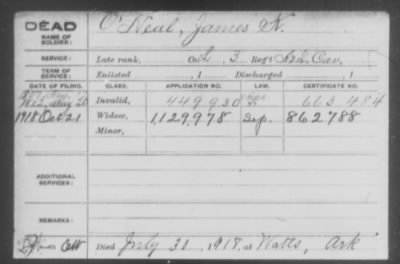 DEAD
NAME OF SOLDIER: O'Neal, James K.
SERVICE: Late rank, Co. L, 3 Reg't Ark. Cav.
TERM OF SERVICE: Enlisted , 1 Discharged , 1
DATE OF FILING. CLASS. APPLICATION NO. LAW. CERTIFICATE NO.
Invalid, 449930 663484
1918 Oct 21 Widow, 1,129,978 Sep. 862788
Minor,
ADDITIONAL SERVICES:
REMARKS:
Died July 31, 1918, at Watts, Ark